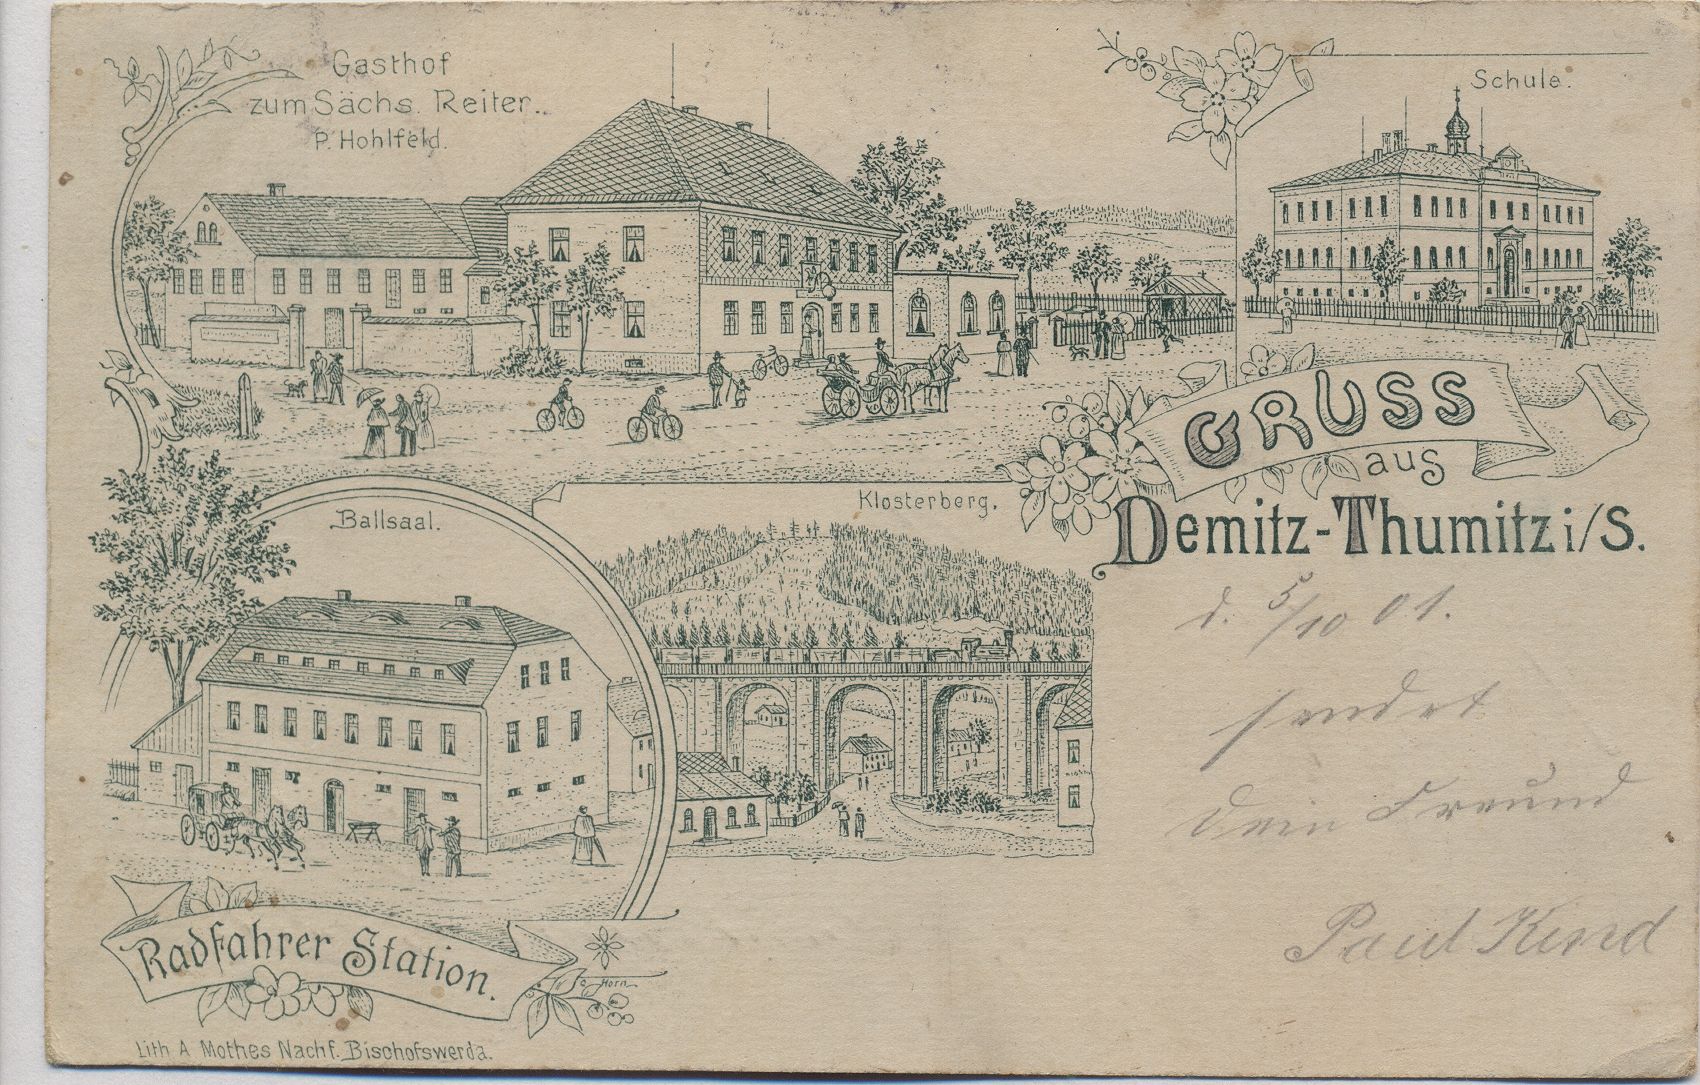 Gasthof
zum Sächs. Reiter.
P. Hohlfeld.
Schule.
GRUSS
aus
Demitz-Thumitz i/S.
Ballsaal.
Klosterberg.
d. 5/10 01.
sendet
Dein Freund
Paul Kind
Radfahrer Station.
Horn
Lith A Mothes Nachf. Bischofswerda.